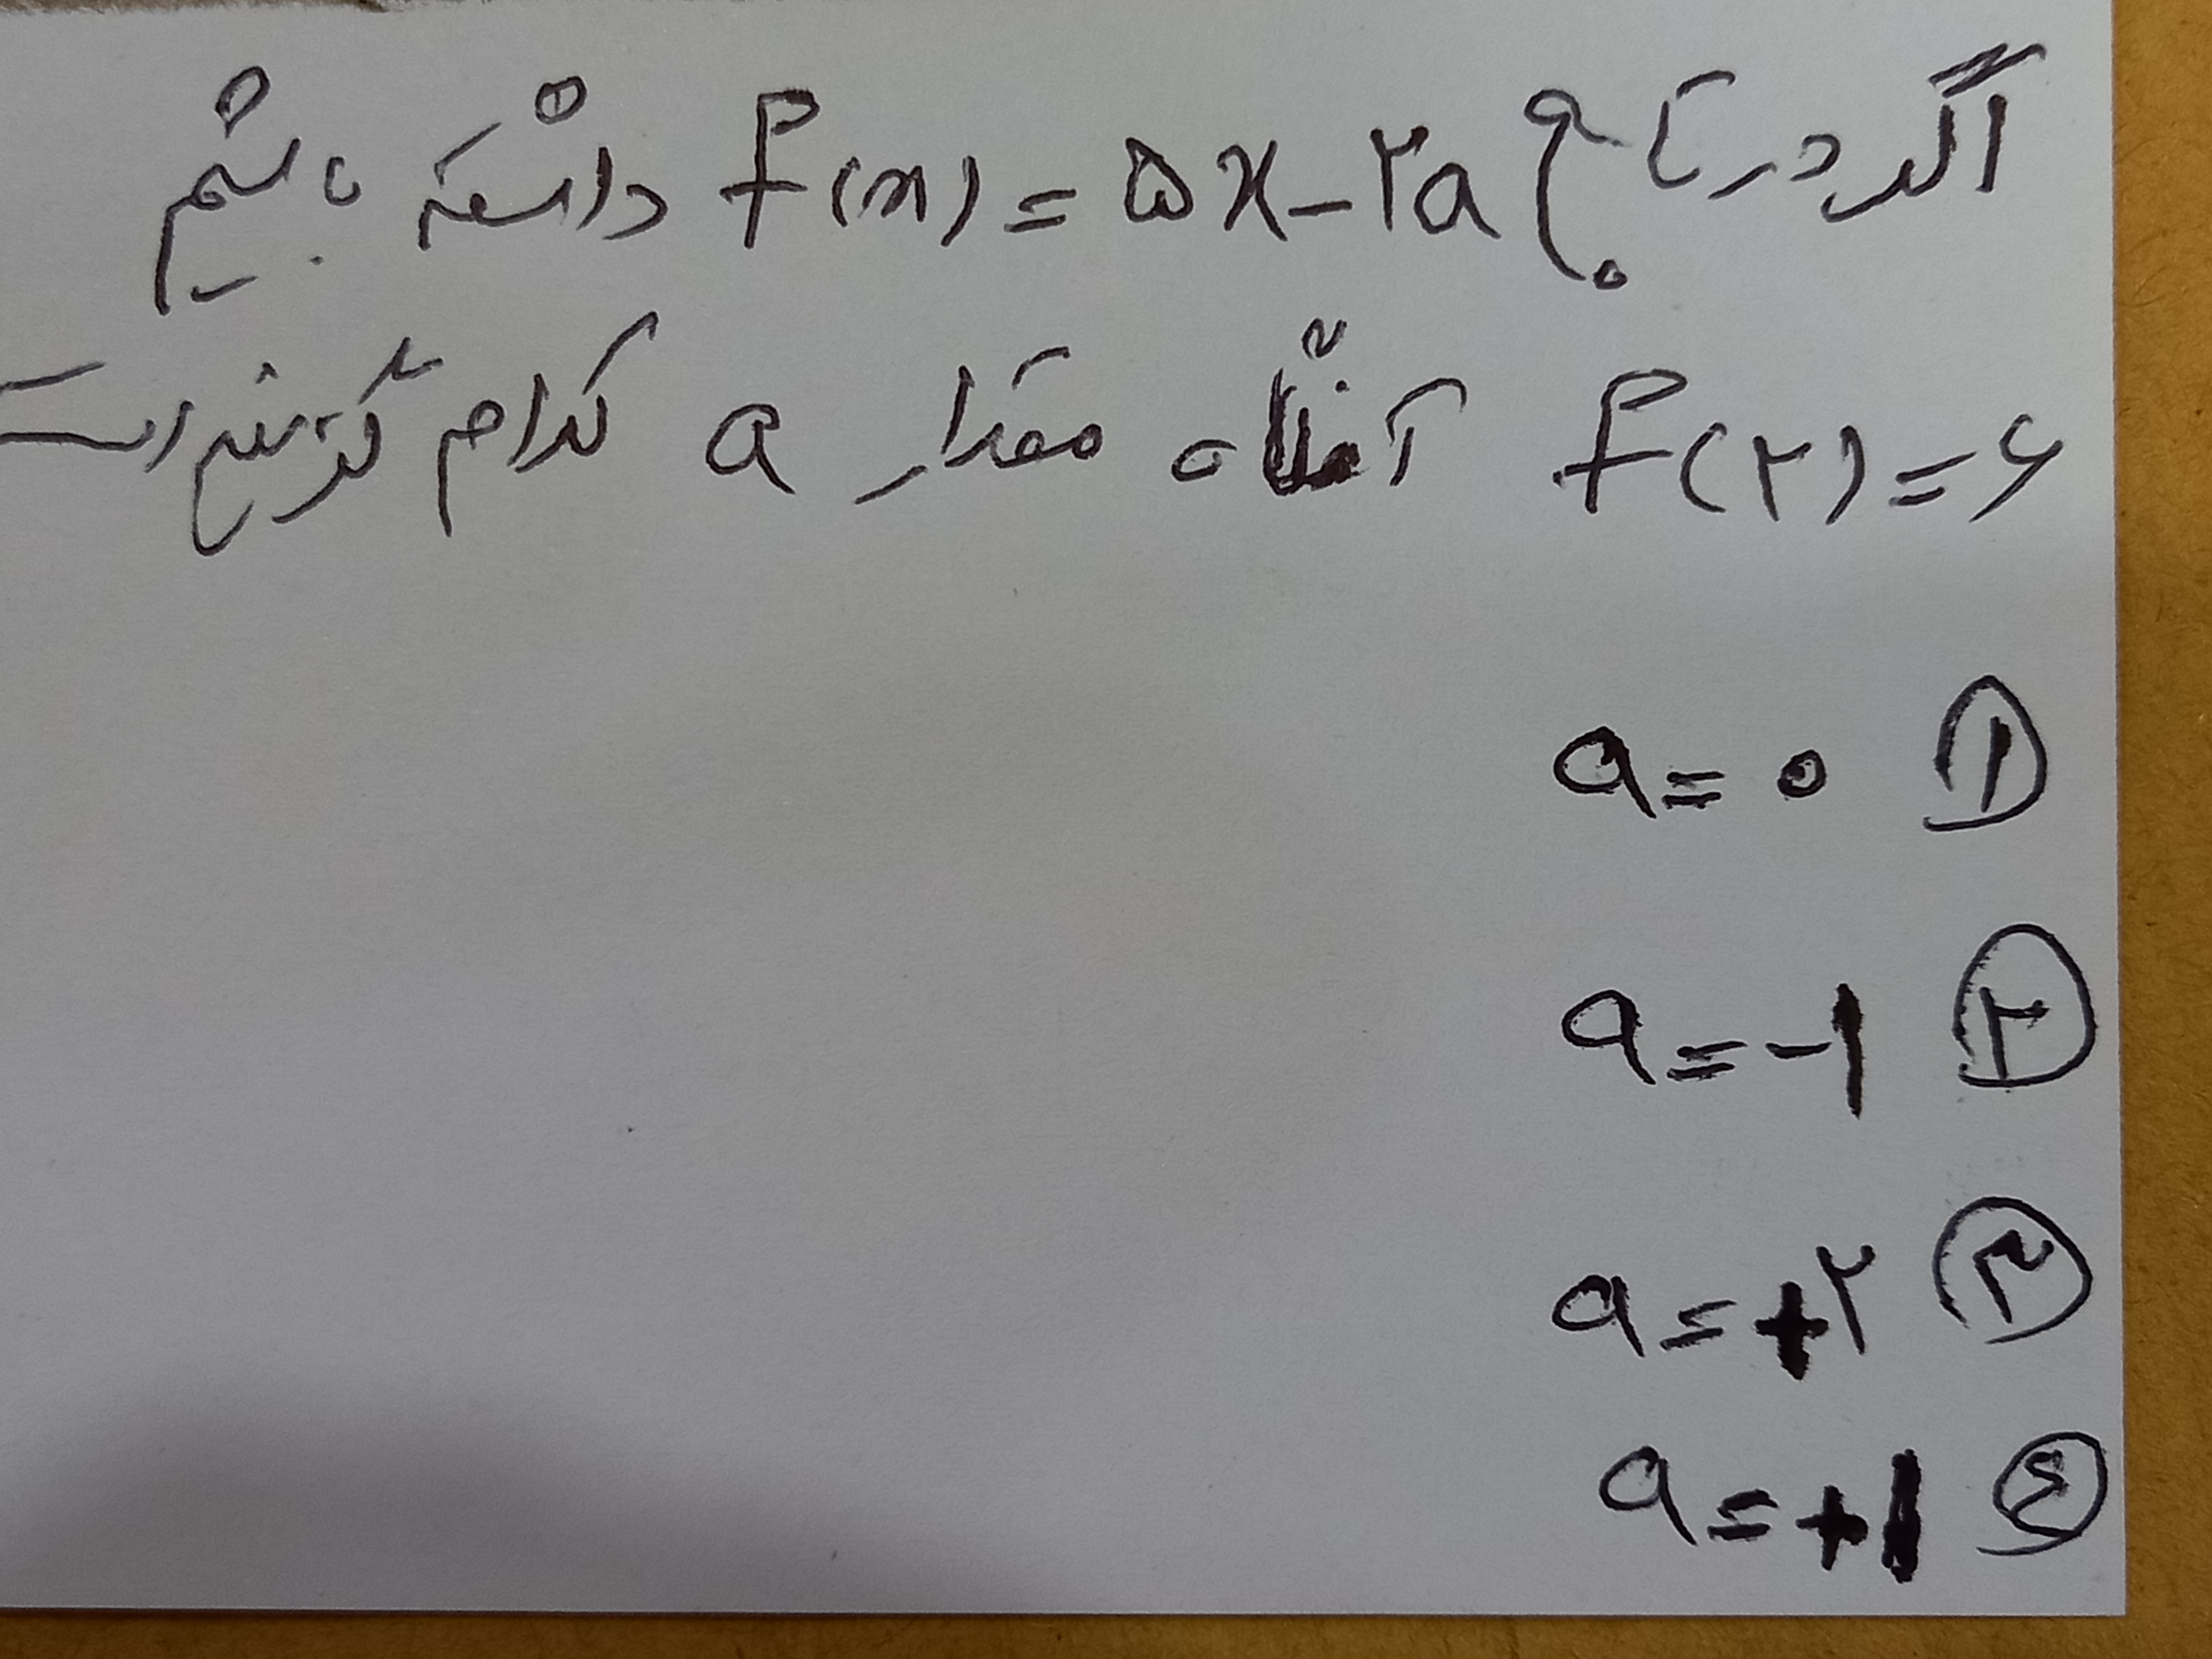 اگر در تابع f(x) = ۵x - ۲a داشته باشیم
f(۲) = ۶ آنگاه مقدار a کدام گزینه است
۱ a = ۰
۲ a = -۱
۳ a = +۲
۴ a = +۱